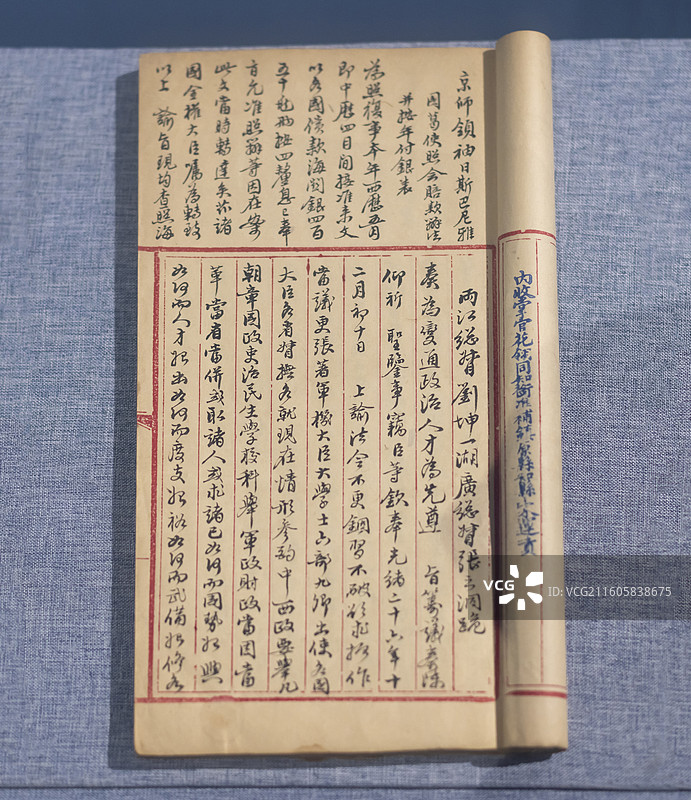 京师領袖日斯巴尼雅
國葛使照会賠款辦法
并按年付銀表
為照復事本年西歷五月
即中歷四月間接准来文
以各國償款海関銀四百
五十兆兩按四釐息已奉
旨允准照辦等因在案
此文當時轉達矣茲諸
國全權大臣囑為轉致
以上 諭旨現均查照海
兩江総督劉坤一湖廣総督張之洞跪
奏為變通政治人才為先遵 旨籌議
仰祈 聖鑒事竊臣等欽奉光緒二十六年十
二月初十日 上諭法令不更錮習不破欲求振作
當議更張著軍機大臣大學士六部九卿出使各國
大臣各省督撫各就現在情形參酌中西政要舉凡
朝章國政吏治民生學校科舉軍政財政當因當
革當省當併或取諸人或求諸己如何而國勢始興
如何而人才始出如何而度支始裕如何而武備始修各
VCG
VCG211605838675